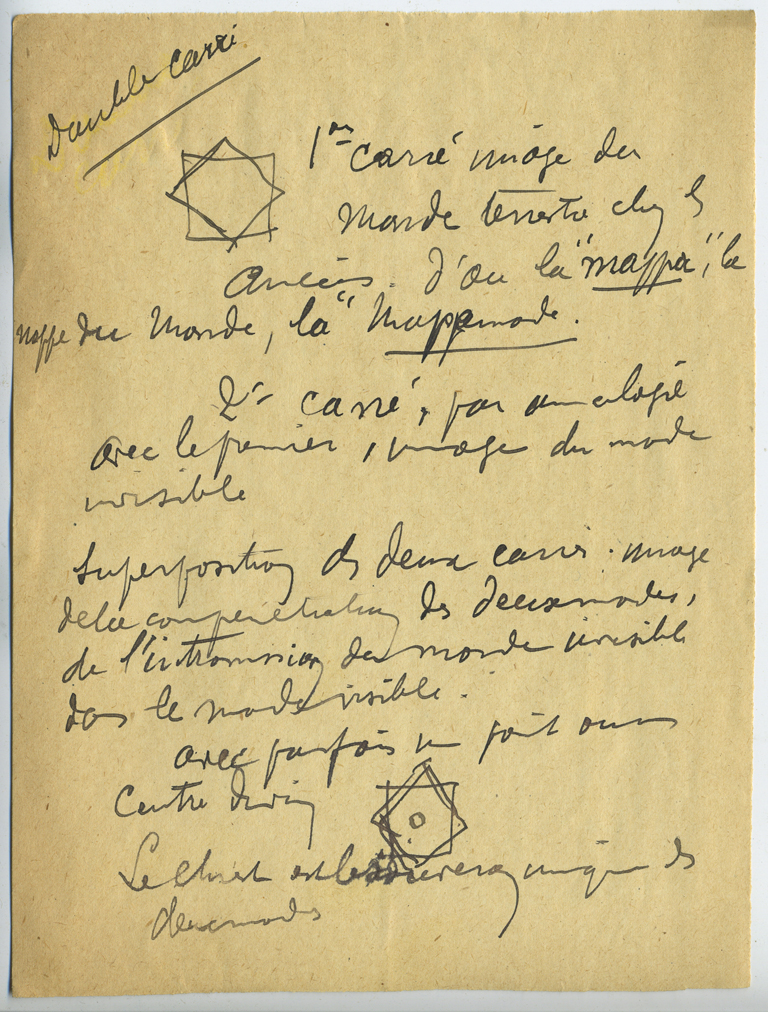 Double Carré
1er carré image du
Monde terrestre chez les
Anciens. D'où la "mappa", la
nappe du Monde, la "Mappemonde.
2e carré, par analogie
avec le premier, image du monde
invisible
Superposition des deux carrés. image
de la compénétration des deux mondes,
de l'intromission du monde invisible
dans le monde visible.
avec parfois un point
Centre divin
Le Christ est le souverain unique des
deux mondes